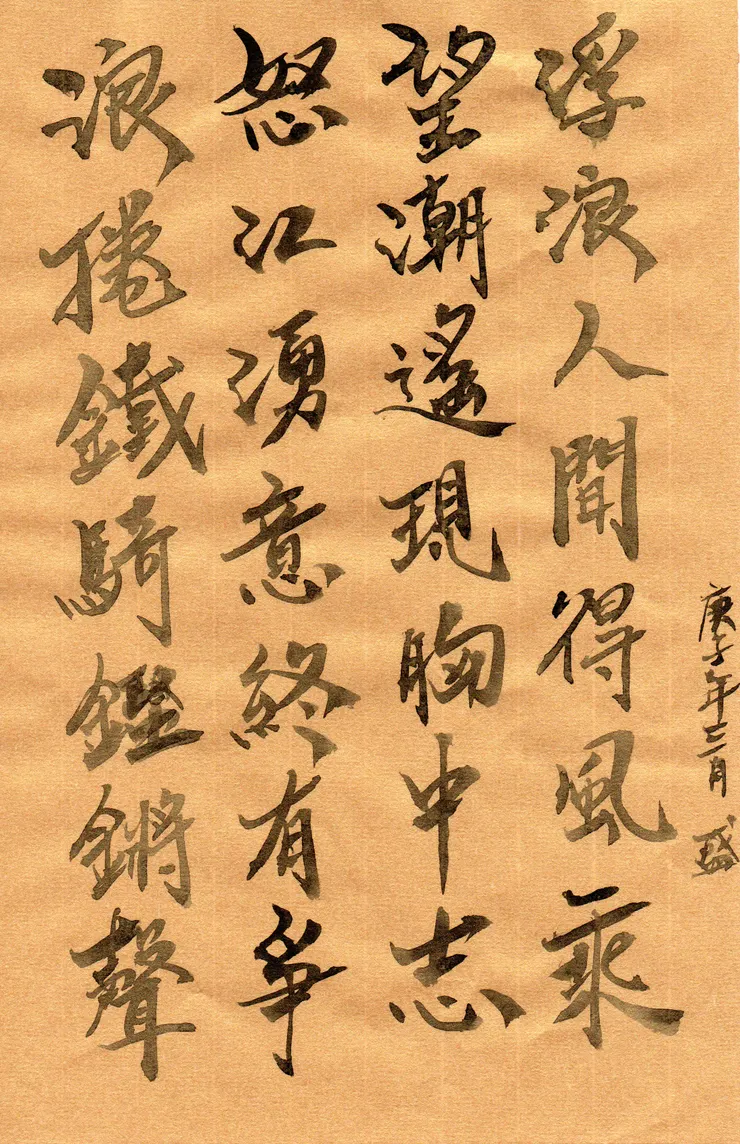 浪捲鐵騎鏗鏘聲
怒江湧意終有爭
望潮遙現胸中志
浮浪人聞得風乘
庚子年三月 盛